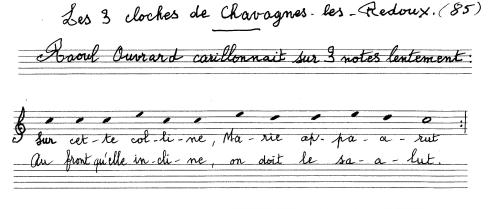 Les 3 cloches de Chavagnes-les-Redoux. (85)
Raoul Ouvrard carillonnait sur 3 notes lentement :
Sur cet-te col-li-ne, Ma-rie ap-pa-a-rut
Au front qu'elle in-cli-ne, on doit le sa-a-lut.